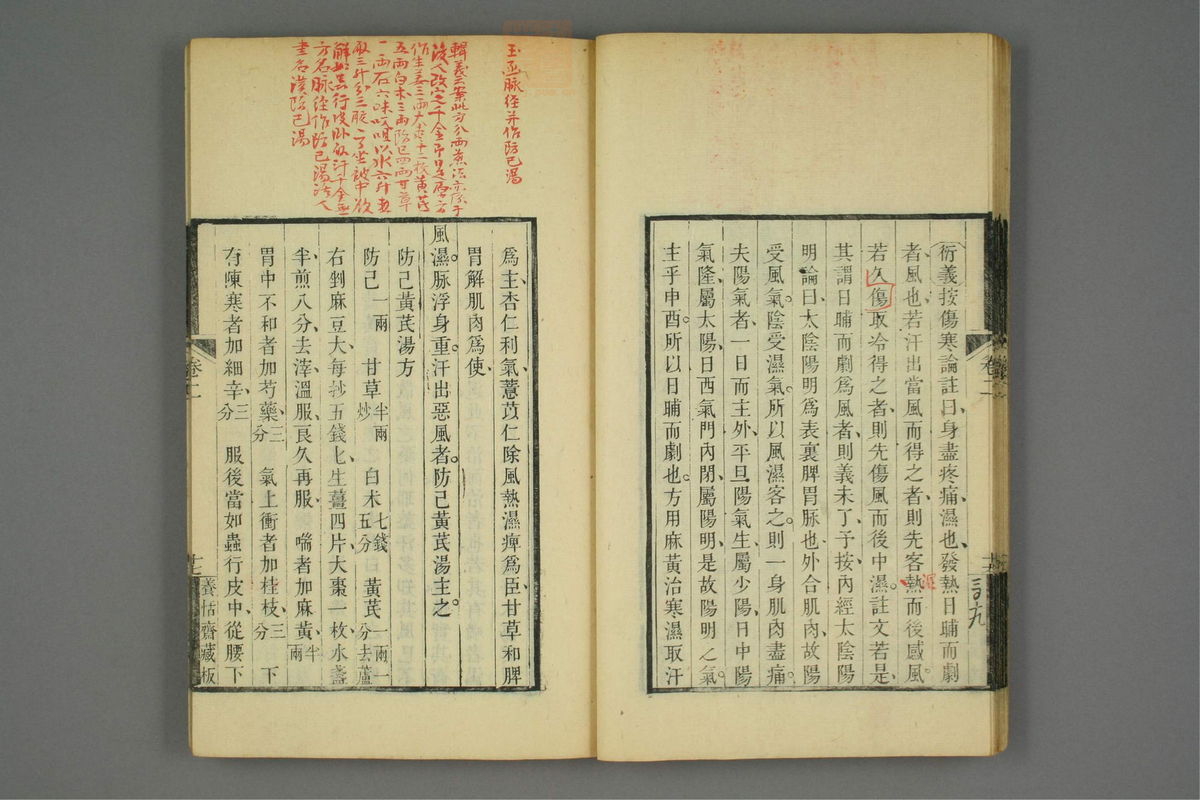 衍義按傷寒論註曰身盡疼痛濕也發熱日晡而劇
者風也若汗出當風而得之者則先客熱而後感風
濕
若久傷取冷得之者則先傷風而後中濕註文若是
其謂日晡而劇爲風者則義未了予按內經太陰陽
明論曰太陰陽明爲表裏脾胃脉也外合肌肉故陽
受風氣陰受濕氣所以風濕客之則一身肌肉盡痛
夫陽氣者一日而主外平旦陽氣生屬少陽日中陽
氣隆屬太陽日西氣門內閉屬陽明是故陽明之氣
主乎申酉所以日晡而劇也方用麻黃治寒濕取汗
卷二
十二
玉函脉經并作防己湯
輯義云案此方分兩煮法亦係于
後人改定千金即是原方
作生姜三兩大棗十二枚黃芪
五兩白朮三兩防己四兩甘草
一兩右六味㕮咀以水六升煮
取三升分三服服了坐被中欲
解如虫行皮卧取汗千金無
方名脉經作防己湯活人
書名漢防己湯
爲主杏仁利氣薏苡仁除風熱濕痺爲臣甘草和脾
胃解肌肉爲使
風濕脉浮身重汗出惡風者防己黃芪湯主之
防己黃芪湯方
防己一兩 甘草半兩炒 白朮七錢五分 黃芪一兩一分去蘆
右剉麻豆大每抄五錢匕生薑四片大棗一枚水盞
半煎八分去滓溫服良久再服 喘者加麻黃半兩
胃中不和者加芍藥三分 氣上衝者加桂枝三分 下
有陳寒者加細辛三分 服後當如蟲行皮中從腰下
卷二
十二
養恬齋藏板